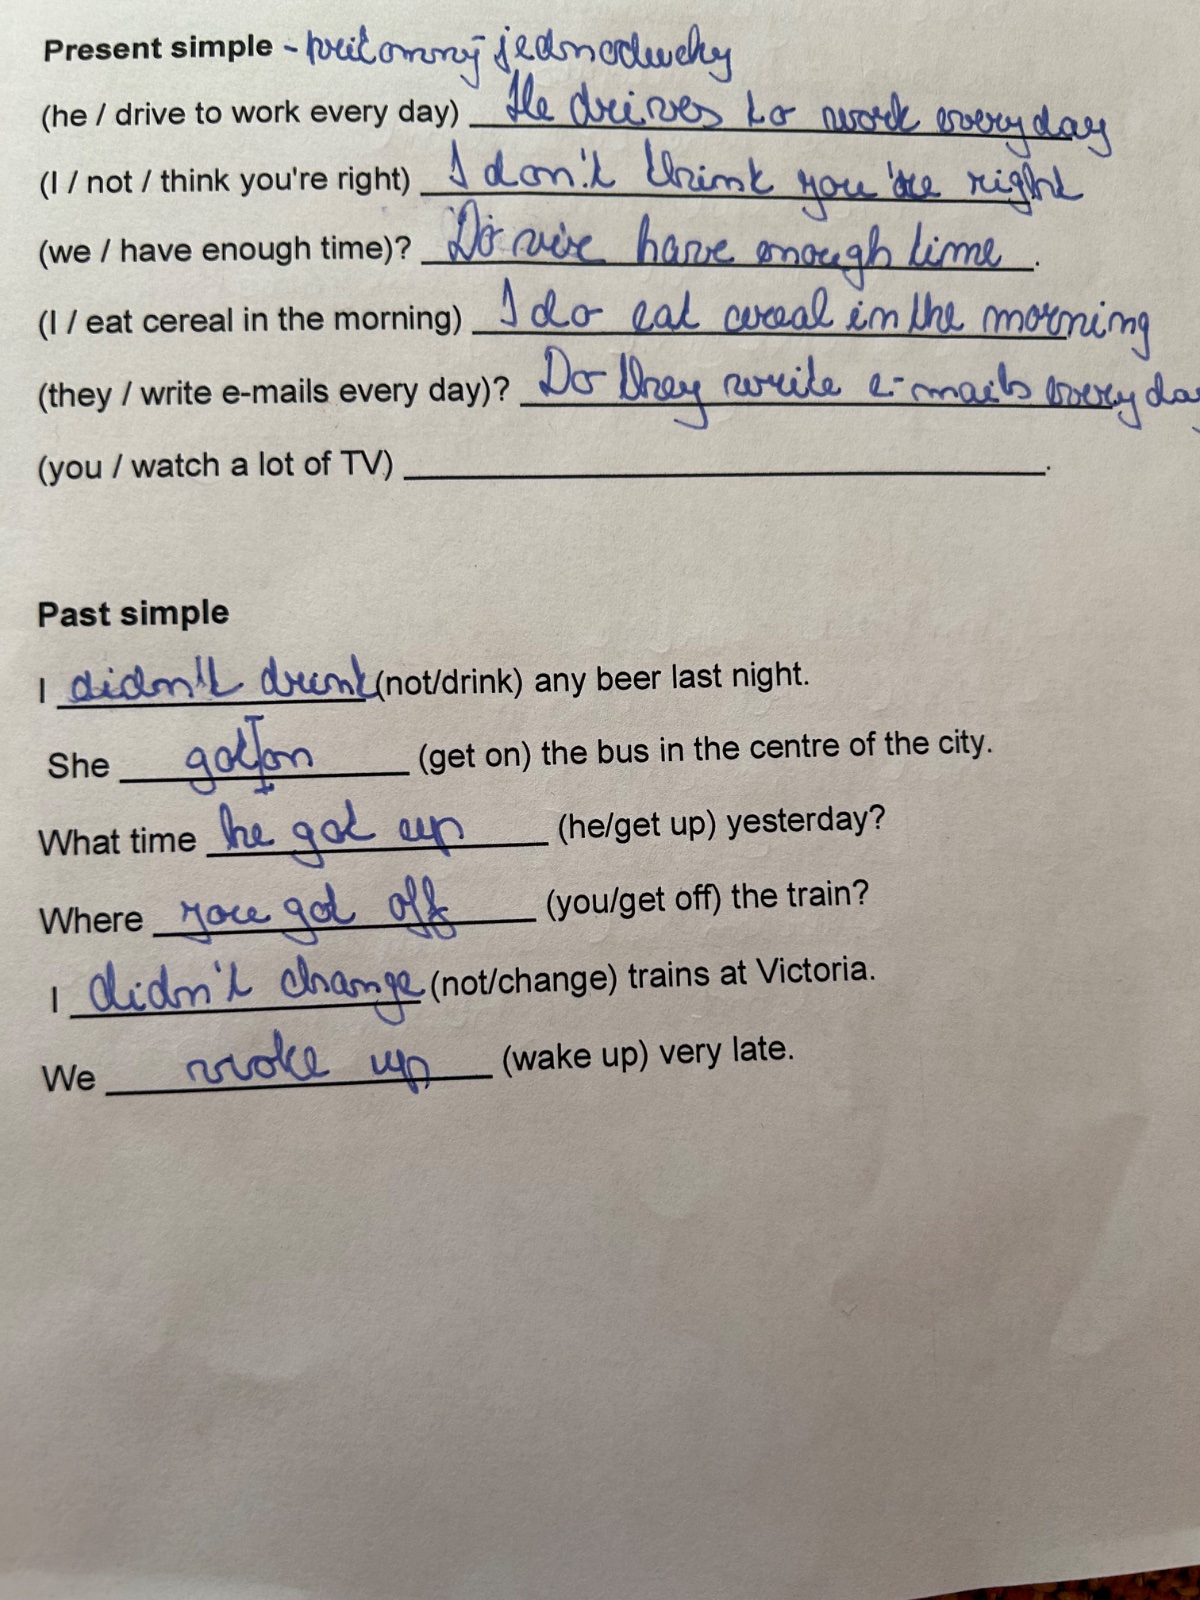 Present simple - prítomný jednoduchý
(he / drive to work every day) He drives to work everyday
(I / not / think you're right) I don't think you're right
(we / have enough time)? Do we have enough time.
(I / eat cereal in the morning) I do eat cereal in the morning
(they / write e-mails every day)? Do they write e-mails every day
(you / watch a lot of TV) .
Past simple
I didn't drink (not/drink) any beer last night.
She got on (get on) the bus in the centre of the city.
What time he got up (he/get up) yesterday?
Where you got off (you/get off) the train?
I didn't change (not/change) trains at Victoria.
We woke up (wake up) very late.